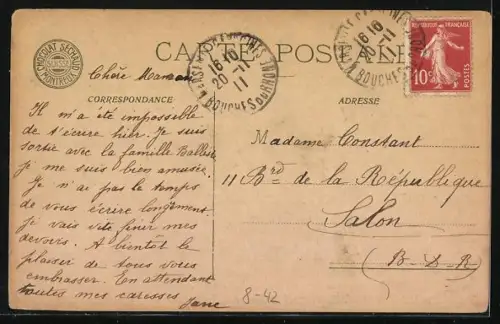 CARTE POSTALE
CHOCOLAT SÉCHAUD
SUISSE
MONTREUX
16 10
20 - 11
11
BOUCHES DU RHONE
16 10
20 - 11
11
BOUCHES DU RHONE
REPUBLIQUE FRANÇAISE
10c
POSTES
CORRESPONDANCE
ADRESSE
Chère Maman
Il m'a été impossible
de t'écrire hier. Je suis
sortie avec la famille
je me suis bien amusée.
Je n'ai pas le temps
de vous écrire longtement.
je vais vite finir mes
devoirs. A bientôt le
plaisir de tous vous
embrasser. En attendant
toutes mes caresses
Jane
Madame Constant
11 Brd de la République
Salon
(B-D-R)
8-42